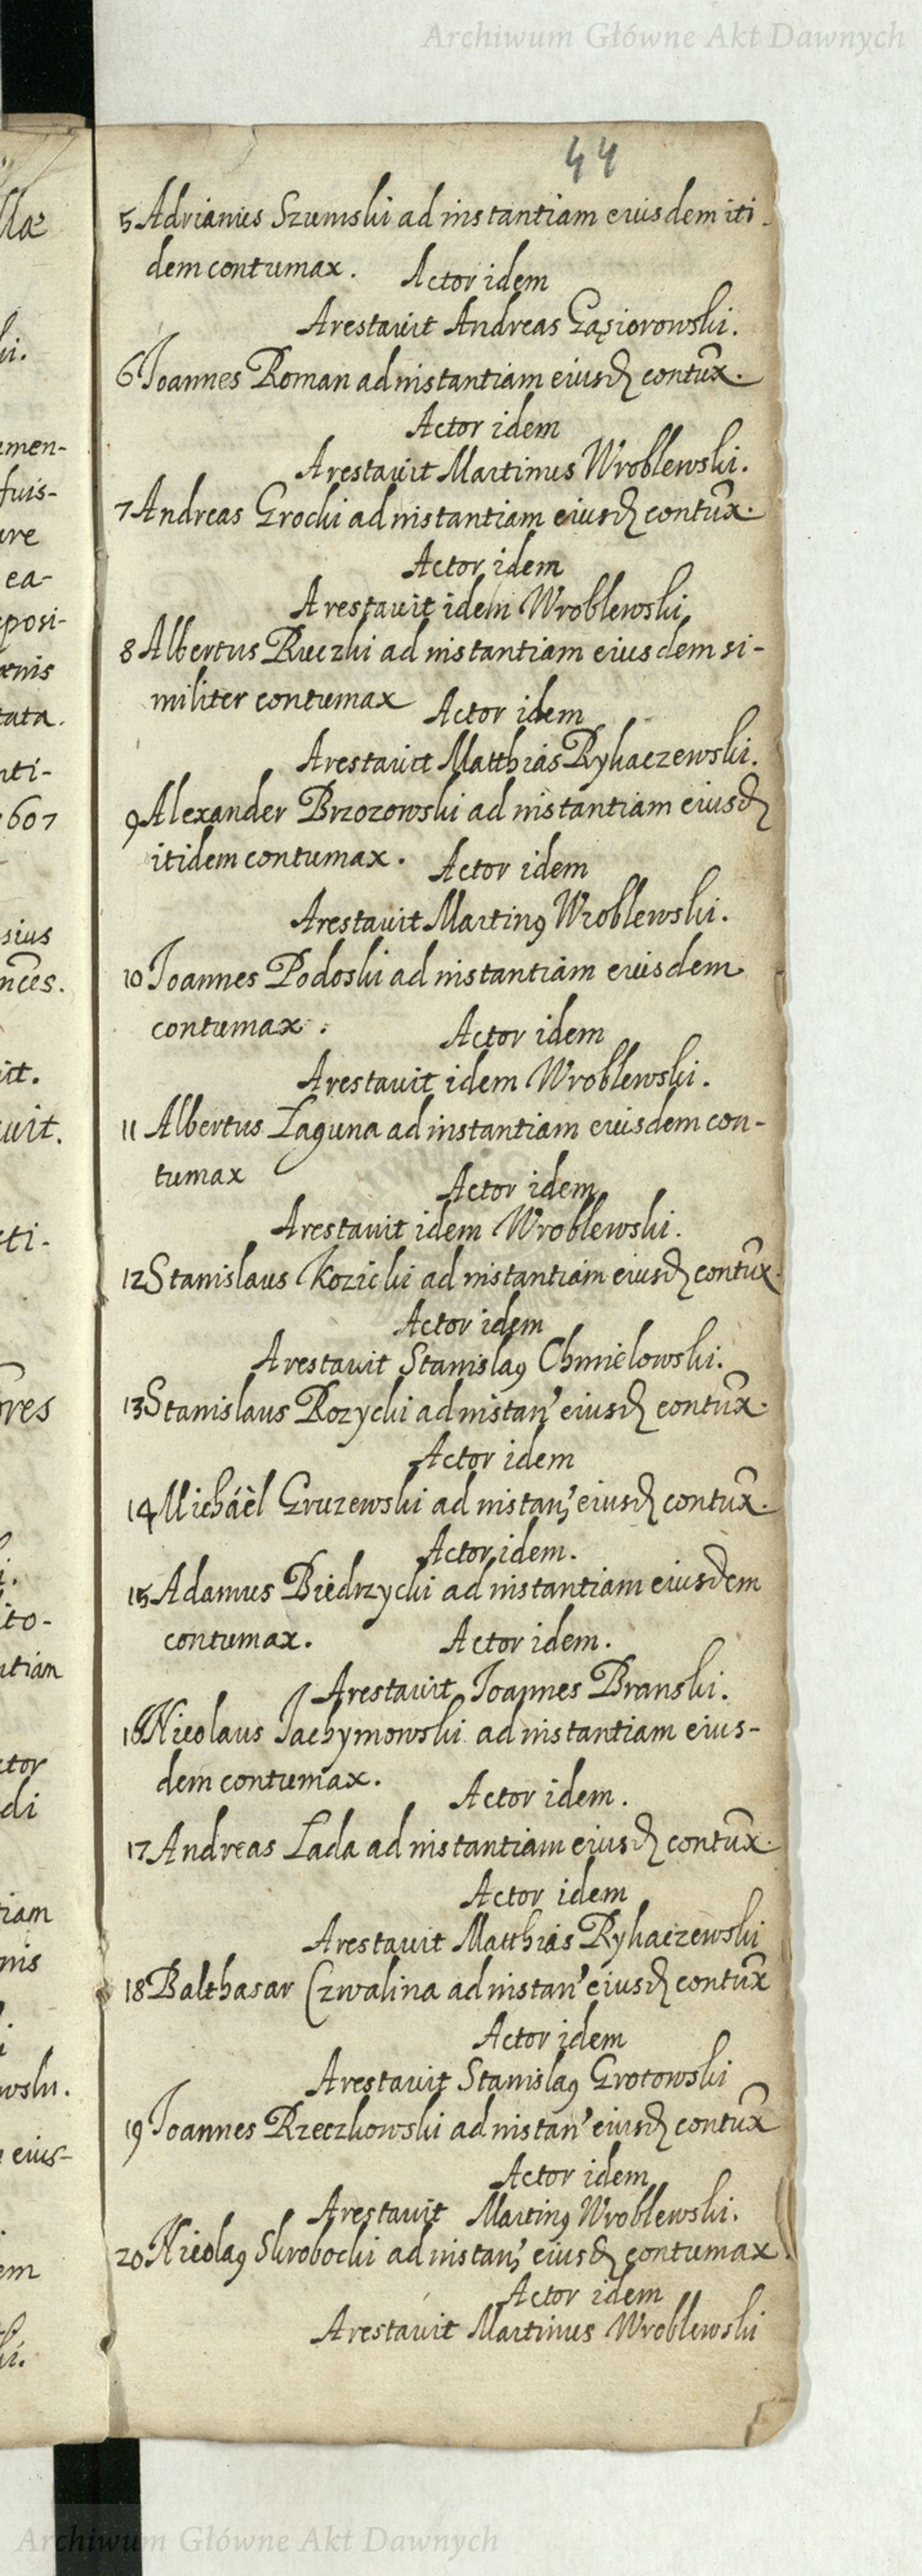 Archiwum Główne Akt Dawnych
44
5 Adrianus Szumski ad instantiam eiusdem iti
dem contumax. Actor idem
Arestauit Andreas Gąsiorowski.
6 Joannes Roman ad instantiam eiusd contux.
Actor idem
Arestauit Martinus Wroblewski.
7 Andreas Grocki ad instantiam eiusd contux.
Actor idem
Arestauit idem Wroblewski
8 Albertus Ruczki ad instantiam eiusdem si-
militer contumax Actor idem
Arestauit Matthias Rykaczewski.
9 Alexander Brzozowski ad instantiam eiusd
itidem contumax. Actor idem
Arestauit Martinꝯ Wroblewski.
10 Joannes Podoski ad instantiam eiusdem
contumax. Actor idem
Arestauit idem Wroblewski.
11 Albertus Laguna ad instantiam eiusdem con-
tumax Actor idem
Arestauit idem Wroblewski.
12 Stanislaus Kozicki ad instantiam eiusd contux.
Actor idem
Arestauit Stanislaꝯ Chmielowski.
13 Stanislaus Rozycki ad instan' eiusd contux.
Actor idem
14 Michäel Gruzewski ad instan' eiusd contux.
Actor idem.
15 Adamus Biedrzycki ad instantiam eiusdem
contumax. Actor idem.
Arestauit Joannes Branski.
16 Nicolaus Jachymowski ad instantiam eius-
dem contumax. Actor idem.
17 Andreas Lada ad instantiam eiusd contux.
Actor idem
Arestauit Matthias Rykaczewski
18 Balthasar Czwalina ad instan' eiusd contux
Actor idem
Arestauit Stanislaꝯ Grotowski
19 Joannes Rzeczkowski ad instan' eiusd contux
Actor idem
Arestauit Martinꝯ Wroblewski.
20 Nicolaꝯ Skrobocki ad instan' eiusd contumax.
Actor idem
Arestauit Martinus Wroblewski
Archiwum Główne Akt Dawnych